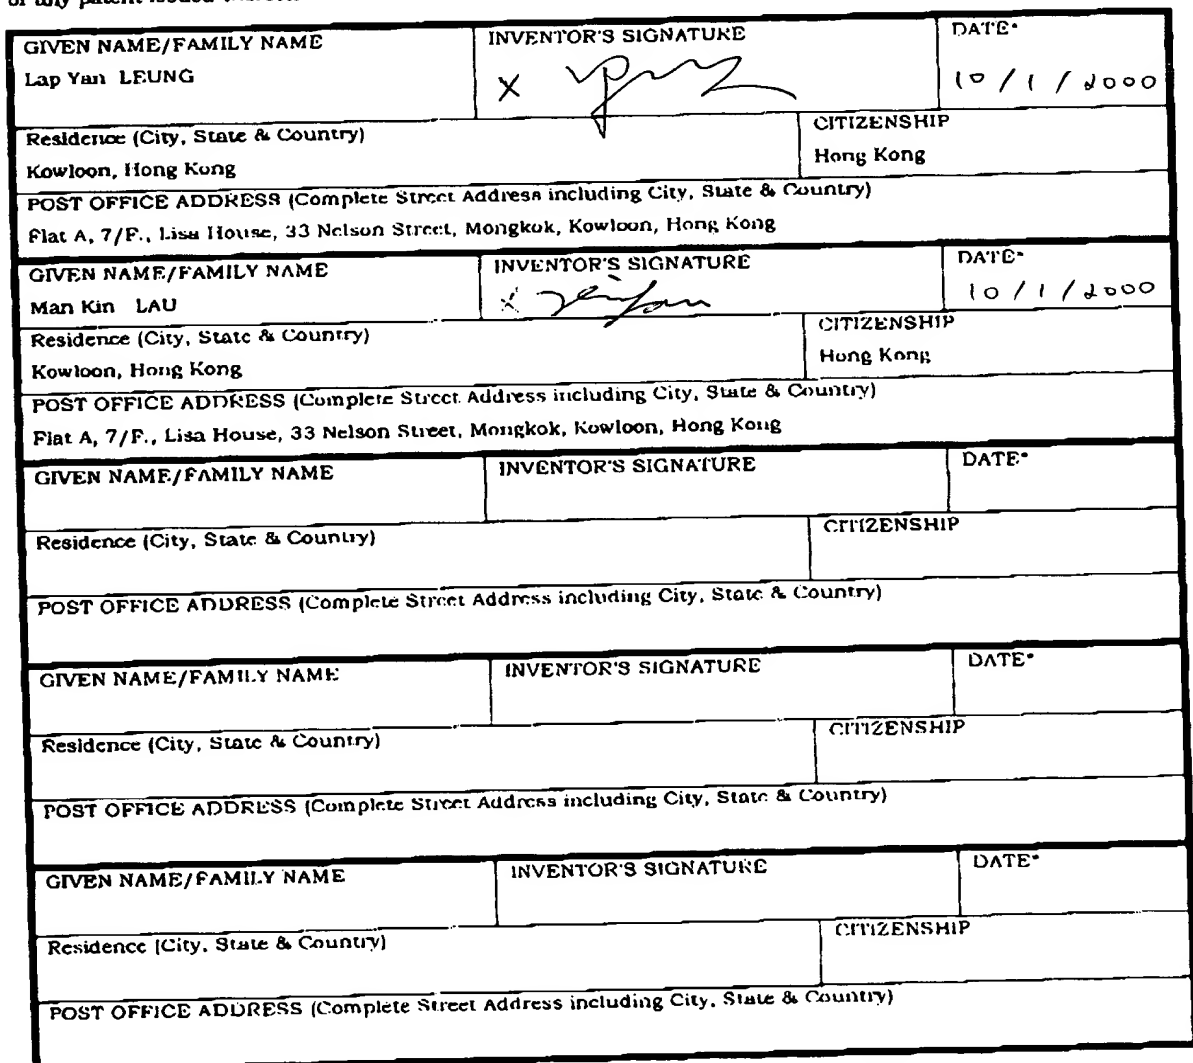 of any patent issued
GIVEN NAME/FAMILY NAME INVENTOR'S SIGNATURE DATE*
Lap Yan LEUNG X 10/1/2000
Residence (City, State & Country) CITIZENSHIP
Kowloon, Hong Kong Hong Kong
POST OFFICE ADDRESS (Complete Street Address including City, State & Country)
Flat A, 7/F., Lisa House, 33 Nelson Street, Mongkok, Kowloon, Hong Kong
GIVEN NAME/FAMILY NAME INVENTOR'S SIGNATURE DATE*
Man Kin LAU X 10/1/2000
Residence (City, State & Country) CITIZENSHIP
Kowloon, Hong Kong Hong Kong
POST OFFICE ADDRESS (Complete Street Address including City, State & Country)
Flat A, 7/F., Lisa House, 33 Nelson Street, Mongkok, Kowloon, Hong Kong
GIVEN NAME/FAMILY NAME INVENTOR'S SIGNATURE DATE*
Residence (City, State & Country) CITIZENSHIP
POST OFFICE ADDRESS (Complete Street Address including City, State & Country)
GIVEN NAME/FAMILY NAME INVENTOR'S SIGNATURE DATE*
Residence (City, State & Country) CITIZENSHIP
POST OFFICE ADDRESS (Complete Street Address including City, State & Country)
GIVEN NAME/FAMILY NAME INVENTOR'S SIGNATURE DATE*
Residence (City, State & Country) CITIZENSHIP
POST OFFICE ADDRESS (Complete Street Address including City, State & Country)